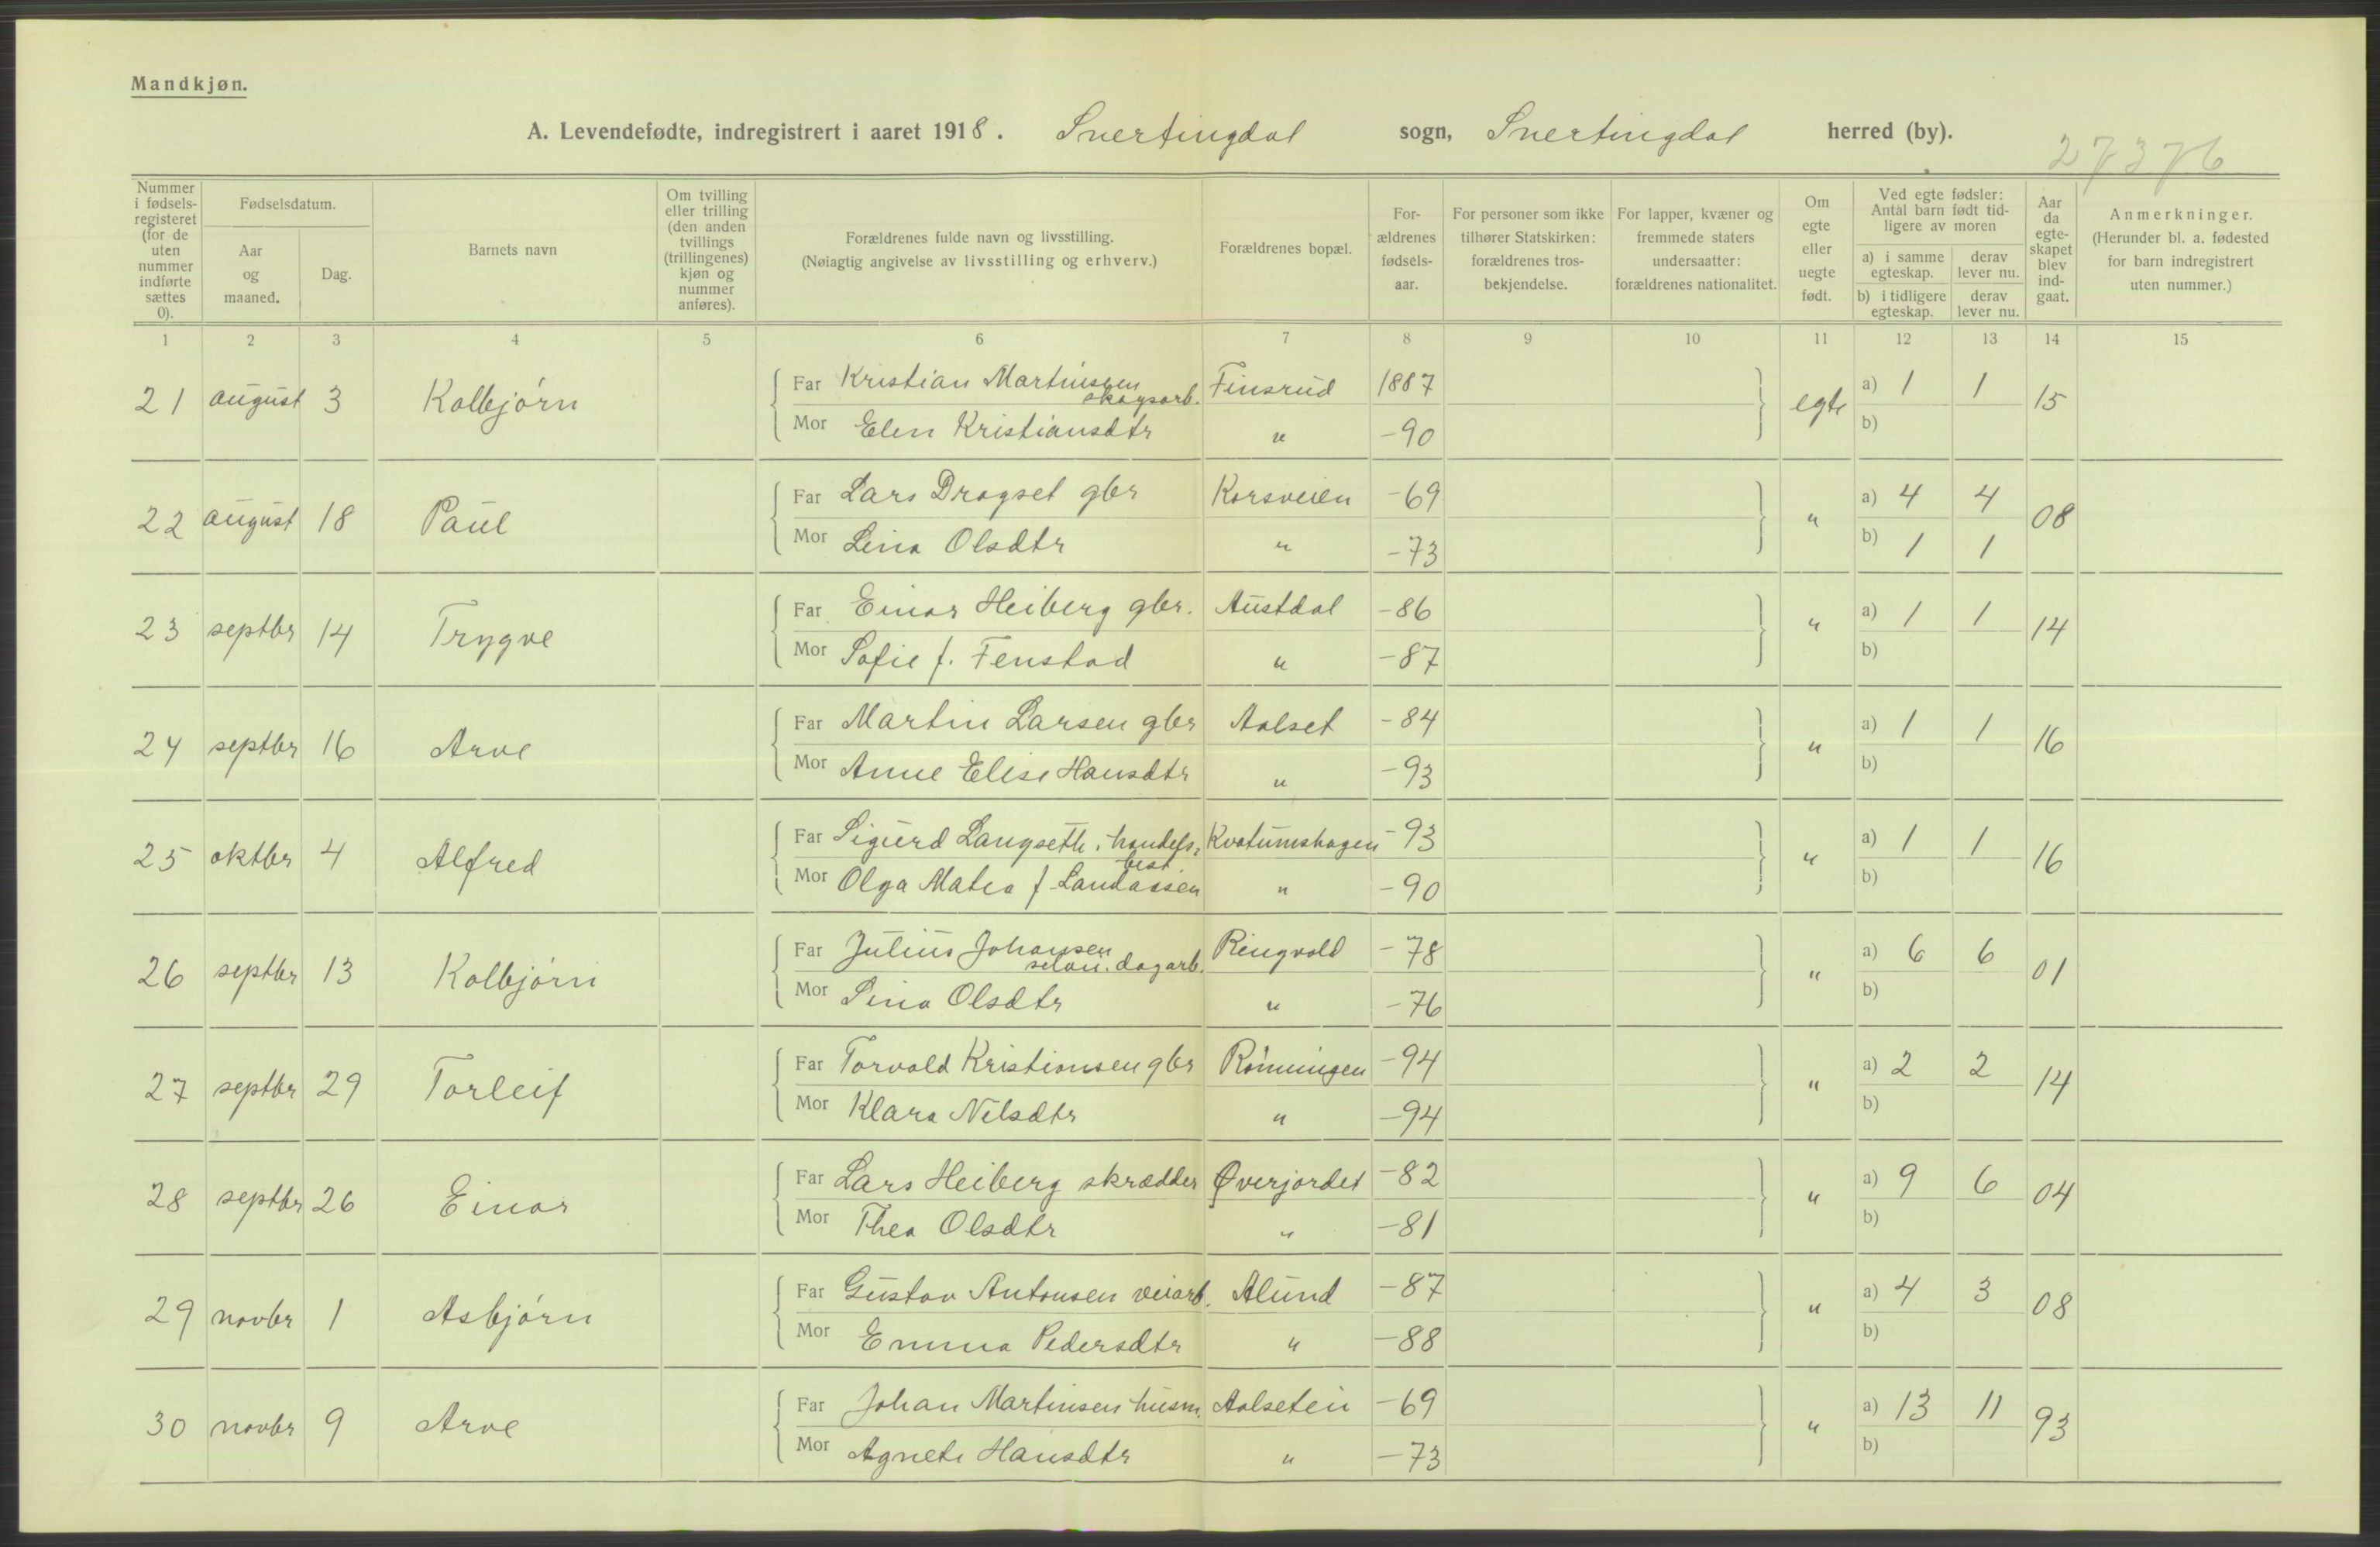 Mandkjøn.
A. Levendefødte, indregistrert i aaret 1918. Snertingdal sogn, Snertingdal herred (by).
27376
Nummer i fødselsregisteret (for de uten nummer indførte sættes 0).
Fødselsdatum.
Aar og maaned.
Dag.
Barnets navn
Om tvilling eller trilling (den anden tvillings (trillingenes) kjøn og nummer anføres).
Forældrenes fulde navn og livsstilling. (Nøiagtig angivelse av livsstilling og erhverv.)
Forældrenes bopæl.
For-ældrenes fødsels-aar.
For personer som ikke tilhører Statskirken: forældrenes tros-bekjendelse.
For lapper, kvæner og fremmede staters undersaatter: forældrenes nationalitet.
Om egte eller uegte født.
Ved egte fødsler: Antal barn født tid-ligere av moren
a) i samme egteskap.
derav lever nu.
b) i tidligere egteskap.
derav lever nu.
Aar da egte-skapet blev ind-gaat.
Anmerkninger. (Herunder bl. a. fødested for barn indregistrert uten nummer.)
1 2 3 4 5 6 7 8 9 10 11 12 13 14 15
21 august 3 Kolbjörn Far Kristian Martinsen skogsarb. Finsrud 1887 egte a) 1 1 15
Mor Elen Kristiansdtr " -90 b)
22 august 18 Paul Far Lars Dragset gbr Korsveien -69 " a) 4 4 08
Mor Lina Olsdtr " -73 b) 1 1
23 septbr 14 Trygve Far Einar Heiberg gbr. Austdal -86 " a) 1 1 14
Mor Sofie f. Fenstad " -87 b)
24 septbr 16 Arve Far Martin Larsen gbr Aalset -84 " a) 1 1 16
Mor Anne Elise Hansdtr " -93 b)
25 oktbr 4 Alfred Far Sigurd Langseth, handelsbest. Kvatumshagen -93 " a) 1 1 16
Mor Olga Matea f. Landaasen " -90 b)
26 septbr 13 Kolbjörn Far Julius Johansen selv. dagarb. Ringvold -78 " a) 6 6 01
Mor Lina Olsdtr " -76 b)
27 septbr 29 Torleif Far Torvald Kristiansen gbr Rönningen -94 " a) 2 2 14
Mor Klara Nilsdtr " -94 b)
28 septbr 26 Einar Far Lars Heiberg skrædder Øverjordet -82 " a) 9 6 04
Mor Thea Olsdtr " -81 b)
29 novbr 1 Asbjörn Far Gustav Antonsen veiarb. Alund -87 " a) 4 3 08
Mor Emma Pedersdtr " -88 b)
30 novbr 9 Arve Far Johan Martinsen husm. Aalseteie -69 " a) 13 11 93
Mor Agnete Hansdtr " -73 b)